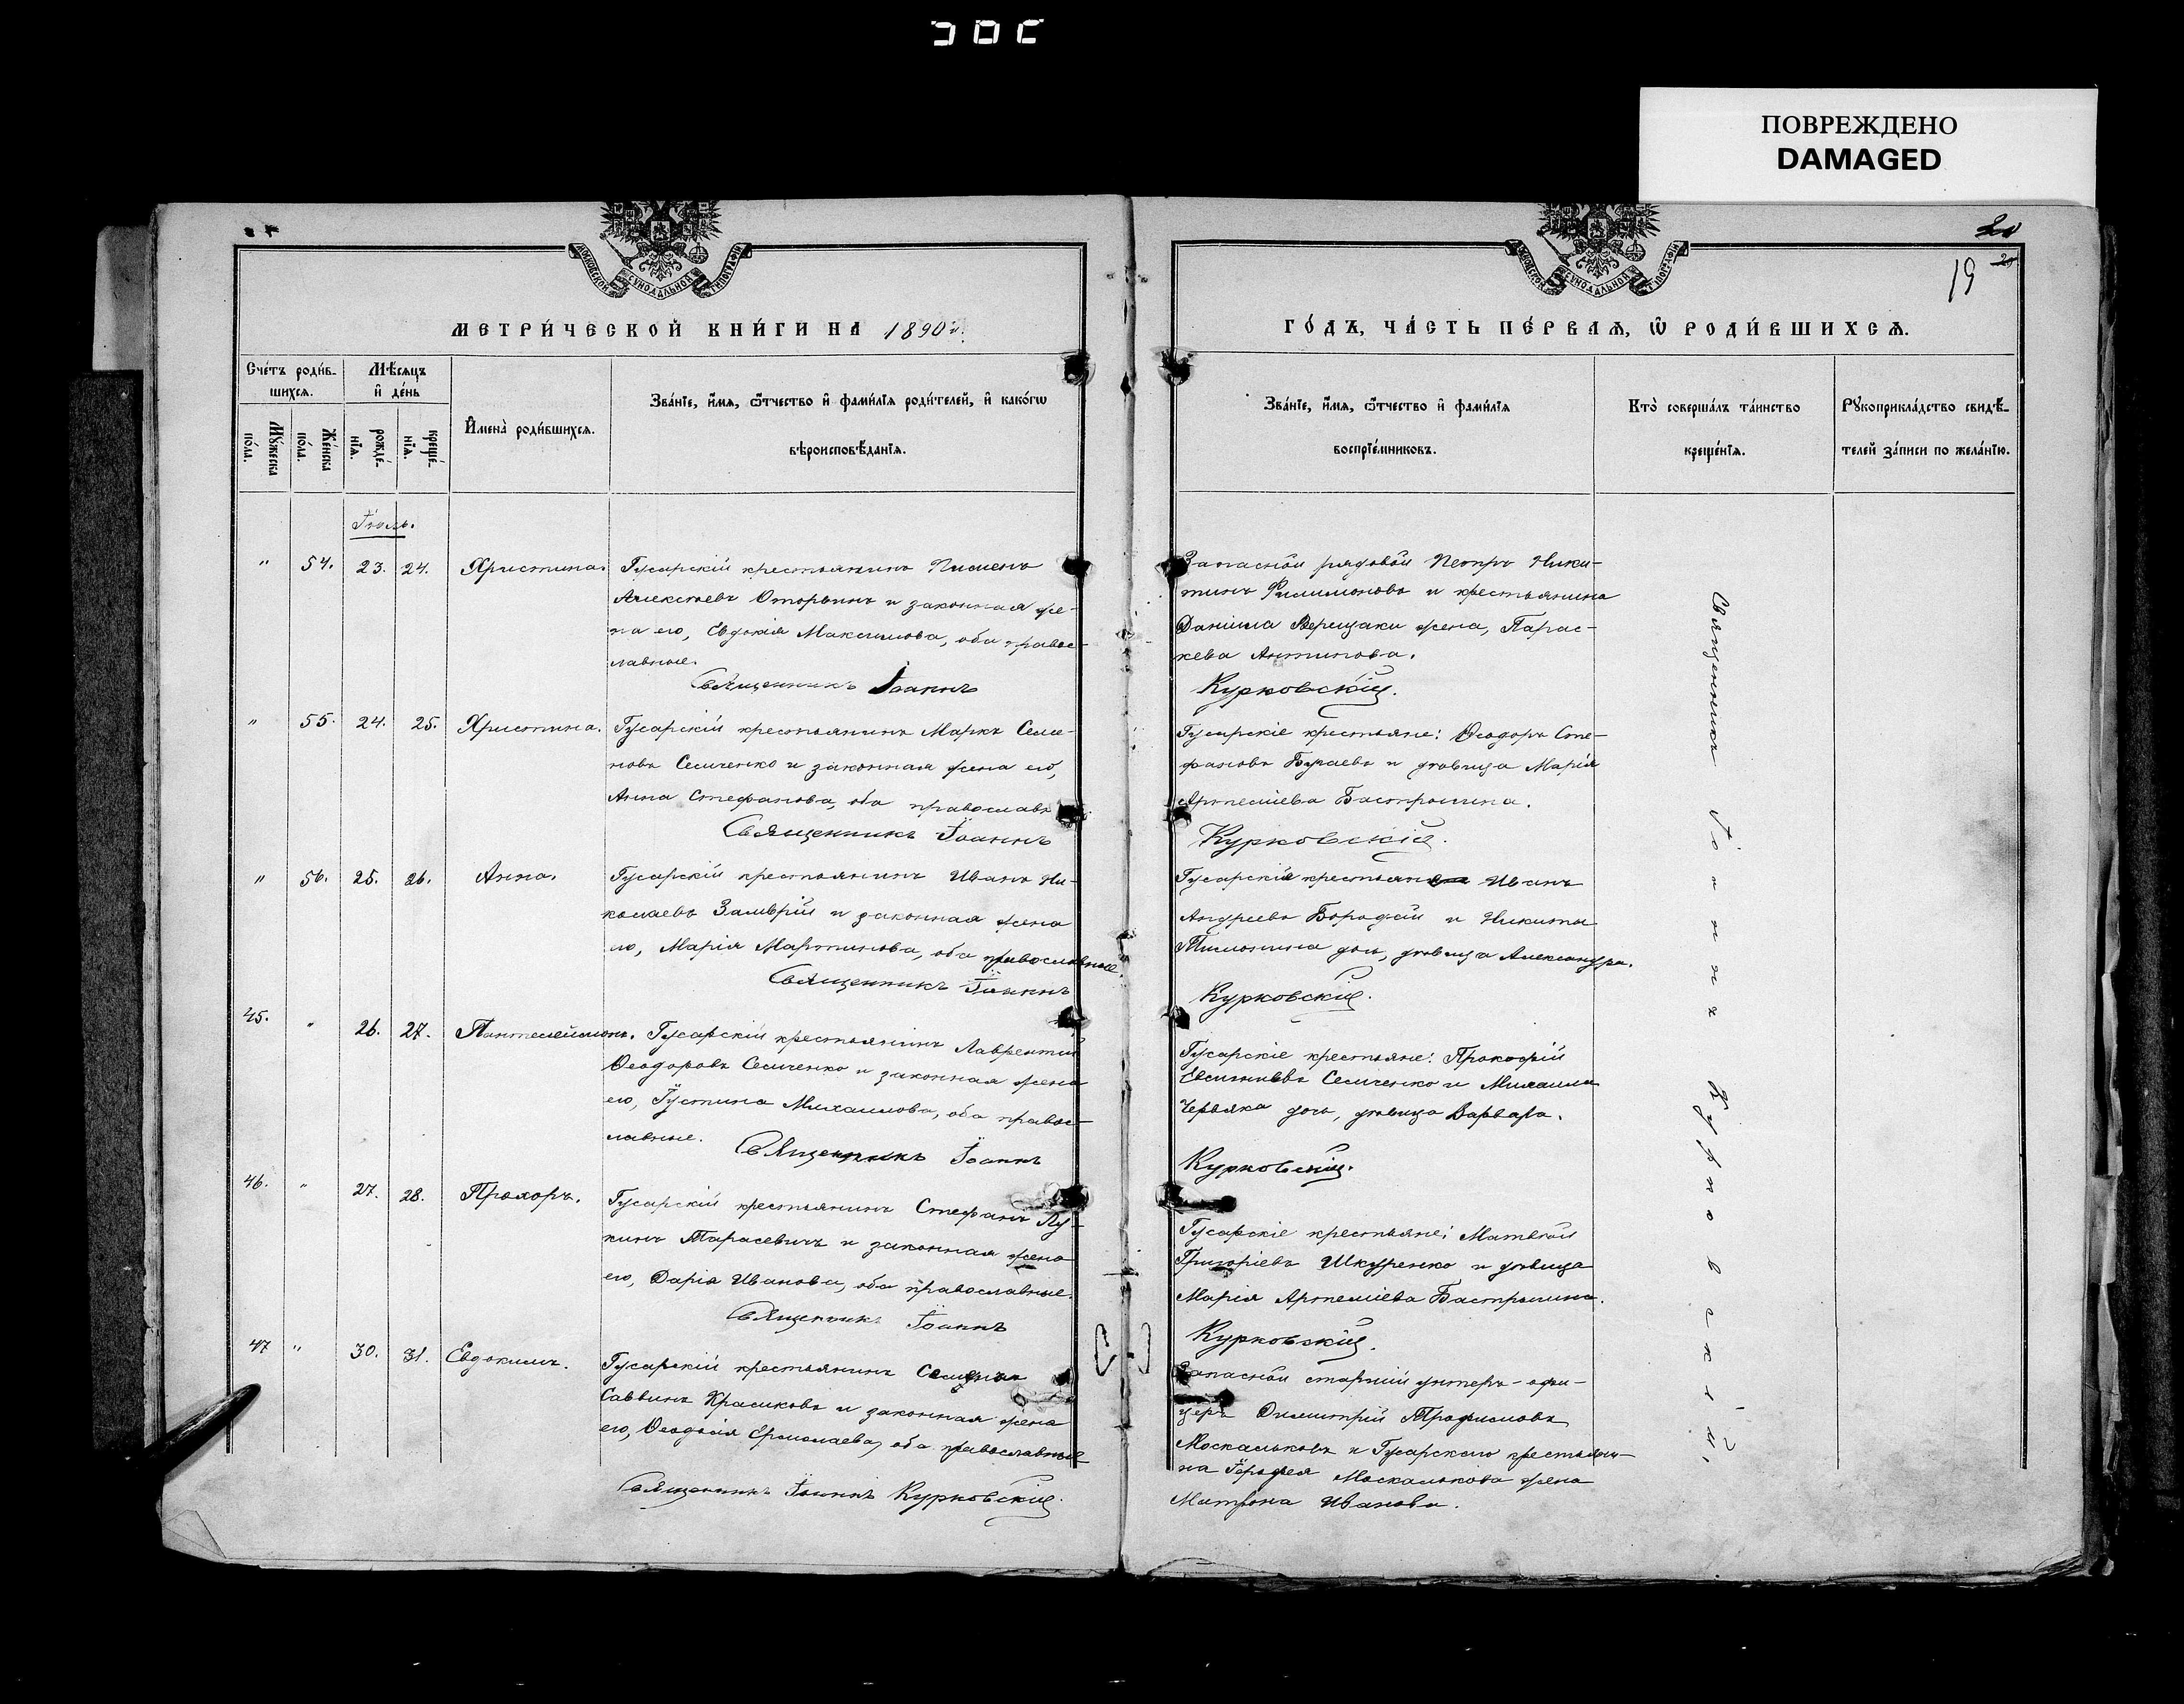 ПОВРЕЖДЕНО
DAMAGED
МОСКОВСКОЙ СѴНОДАЛЬНОЙ ТИПОГРАФІИ
МОСКОВСКОЙ СѴНОДАЛЬНОЙ ТИПОГРАФІИ
20
19
МЕТРИ́ЧЕСКОЙ КНИ́ГИ НА 1890 г.
ГО́ДЪ, ЧА́СТЬ ПЕ́РВАѦ, Ѡ҆ РОДИ́ВШИХСѦ.
Сче́тъ роди́в-
шихсѧ.
Мꙋ́жеска
по́ла.
Же́нска
по́ла.
Мѣ́сѧцъ
и҆ де́нь
рожде́-
нїѧ.
креще́-
нїѧ.
И҆мена̀ роди́вшихсѧ.
Зва́нїе, и҆́мѧ, ѻ҆́тчество и҆ фами́лїѧ роди́телей, и҆ како́гѡ
вѣроисповѣ́данїѧ.
Зва́нїе, и҆́мѧ, ѻ҆́тчество и҆ фами́лїѧ
воспрїе́мниковъ.
Кто̀ соверша́лъ та́инство
креще́нїѧ.
Рꙋкоприкла́дство свидѣ́-
телей за́писи по жела́нїю.
Іюль.
" 54. 23. 24. Христина. Гусарскій крестьянинъ Пименъ
Алексѣевъ Вторынъ и законная же-
на его, Евдокія Максимова, оба правос-
лавные.
Священникъ Іоаннъ
Запасной рядовой Петръ Ники-
тинъ Филимоновъ и крестьянина
Даніила Верещаки жена, Парас-
кева Антипова.
Курковскій.
" 55. 24. 25. Христина. Гусарскій крестьянинъ Маркъ Семе-
новъ Семченко и законная жена его,
Анна Стефанова, оба православн
Священникъ Іоаннъ
Гусарскіе крестьяне: Ѳеодоръ Сте-
фановъ Бураевъ и дѣвица Марія
Артеміева Бастрыгина.
Курковскій.
" 56. 25. 26. Анна. Гусарскій крестьянинъ Иванъ Ни-
колаевъ Замврій и законная жена
его, Марія Мартинова, оба православные.
Священникъ Іоаннъ
Гусарскій крестьян Иванъ
Андреевъ Бородій и Никиты
дочь, дѣвица Александра.
Курковскій.
45. " 26. 27. Пантелеймонъ. Гусарскій крестьянинъ Лаврентій
Ѳеодоровъ Семченко и законная жена
его, Іустина Михаилова, оба правос-
лавные.
Священникъ Іоаннъ
Гусарскіе крестьяне: Прокофій
Евсигніевъ Семченко и Михаила
Червяка дочь, дѣвица Варвара.
Курковскій.
46. " 27. 28. Прохоръ. Гусарскій крестьянинъ Стефанъ Лу-
кинъ Тарасевичъ и законная жена
его, Дарія Иванова, оба православные.
Священникъ Іоаннъ
Гусарскіе крестьяне: Матвѣй
Григоріевъ Шкуренко и дѣвица
Марія Артеміева Бастрыгина.
Курковскій.
47 " 30. 31. Евдокимъ. Гусарскій крестьянинъ
Саввинъ Красиковъ и законная жена
его, Ѳеодосія Ермолаева, оба православные
Священникъ Іоаннъ Курковскій.
Запасной старшій унтеръ-офи-
церъ Димитрій Трофимовъ
Москальковъ и Гусарскаго крестьяни-
на Іерофея Москалькова жена
Матрона Иванова.
Священникъ Іоаннъ Курковскій.